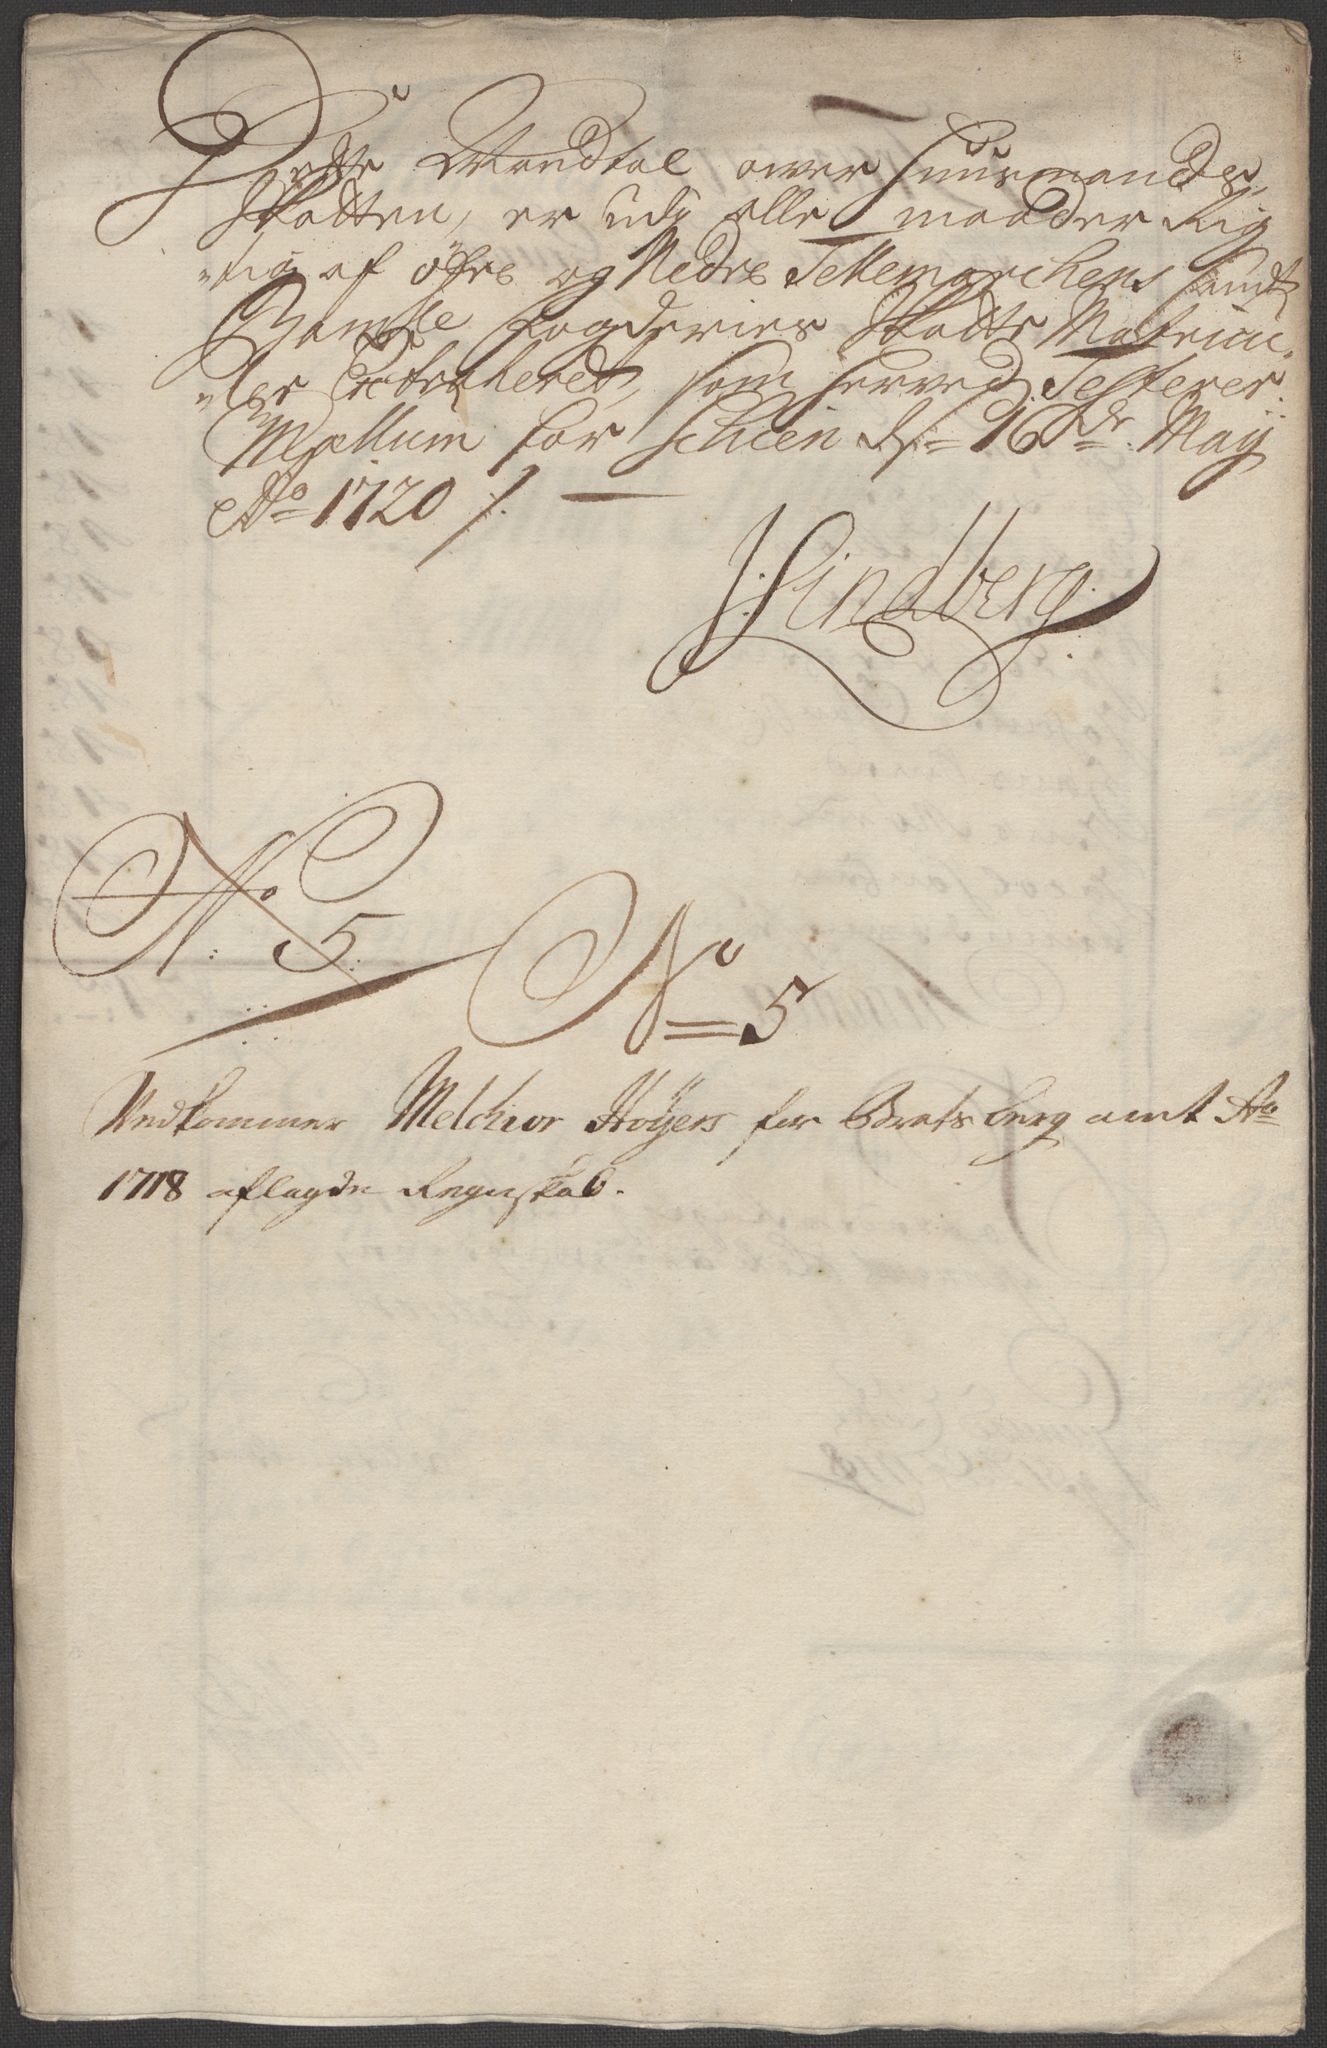 Dette Mandtal over Huusmands
Skatten, er udj alle maader Rig
-tig af öfre og Nedre Tellemarchens samt
Bamble Fogderiers Skatte Matricu-
-ler Extraheret, som herved Testerer.
Mællum for Schien d. 16de May
Ao 1720 /.
Lindberg
No 5
No 5
Vedkommer Melchior Høyers for Bratsberg amt Ao
1718 aflagde Regnskab.